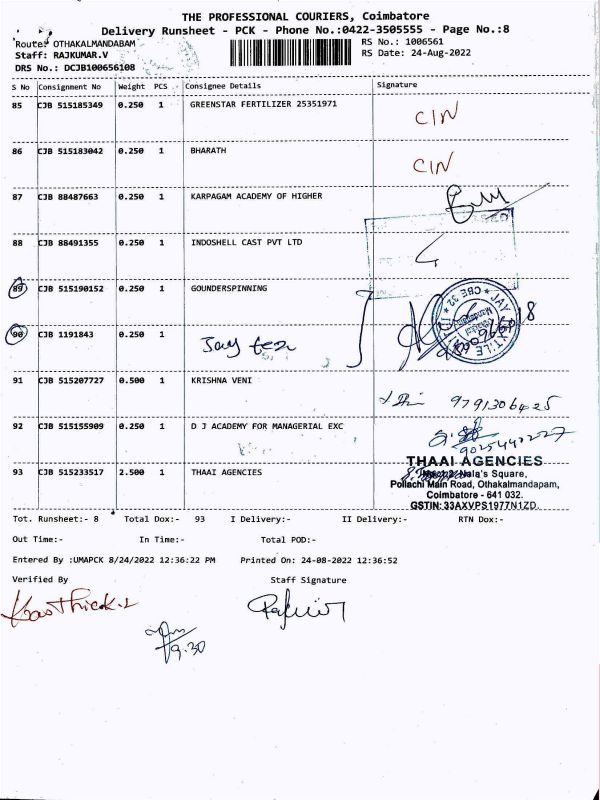 THE PROFESSIONAL COURIERS, Coimbatore
Delivery Runsheet - PCK - Phone No.:0422-3505555 - Page No.:8
Route: OTHAKALMANDABAM
RS No.: 1006561
Staff: RAJKUMAR.V
RS Date: 24-Aug-2022
DRS No.: DCJB100656108
S No Consignment No Weight PCS Consignee Details Signature
85 CJB 515185349 0.250 1 GREENSTAR FERTILIZER 25351971 CIN
86 CJB 515183042 0.250 1 BHARATH CIN
87 CJB 88487663 0.250 1 KARPAGAM ACADEMY OF HIGHER
88 CJB 88491355 0.250 1 INDOSHELL CAST PVT LTD
89 CJB 515190152 0.250 1 GOUNDERSPINNING
90 CJB 1191843 0.250 1 Jay tex
91 CJB 515207727 0.500 1 KRISHNA VENI 9791306425
92 CJB 515155909 0.250 1 D J ACADEMY FOR MANAGERIAL EXC 9025442227
93 CJB 515233517 2.500 1 THAAI AGENCIES
THAAI AGENCIES
Square,
Pollachi Main Road, Othakalmandapam,
Coimbatore - 641 032.
GSTIN: 33AXVPS1977N1ZD.
Tot. Runsheet:- 8 Total Dox:- 93 I Delivery:- II Delivery:- RTN Dox:-
Out Time:- In Time:- Total POD:-
Entered By :UMAPCK 8/24/2022 12:36:22 PM Printed On: 24-08-2022 12:36:52
Verified By Staff Signature
Karthick.
9.30